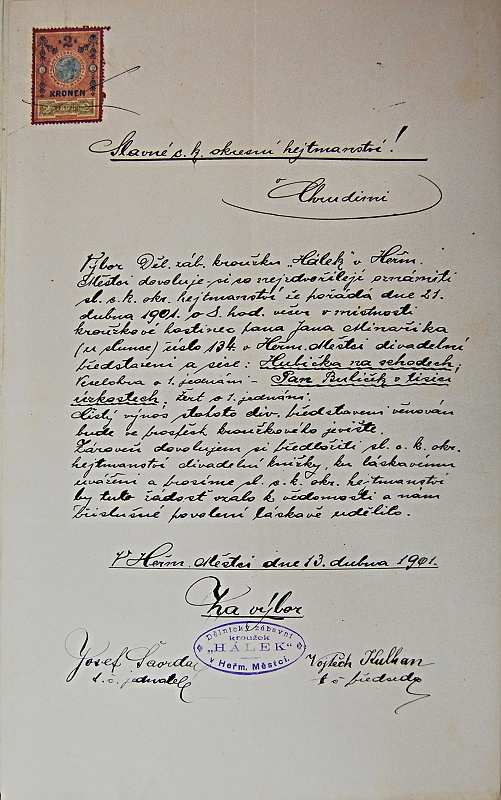 2
KRONEN
Slavné c. k. okresní hejtmanství!
v Chrudimi
Výbor Děl. záb. kroužku „Hálek" v Heřm.
Městci dovoluje si co nejzdvořileji oznámiti
sl. c. k. okr. hejtmanství že pořádá dne 21.
dubna 1901. o 8. hod. večer v místnosti
kroužkové hostinec pana Jana Minaříka
(u slunce) číslo 134. v Heřm. Městci divadelní
představení a sice: Hubička na schodech,
Veselohra o 1. jednání - Pan Bulíček v tísíci
úzkostech, žert o 1. jednání.
Čistý výnos tohoto div. představení věnován
bude ve prospěch kroužkového jeviště.
Zároveň dovolujem si předložiti sl. c. k. okr.
hejtmanství divadelní knížky, ku láskavému
uvážení a prosíme sl. c. k. okr. hejtmanství
by tuto žádost vzalo k vědomosti a nám
příslušné povolení láskavě udělilo.
V Heřm. Městci dne 13. dubna 1901.
Za výbor
Dělnický zábavní
kroužek
„HÁLEK"
v Heřm. Městci.
Josef Šavrda
t. č. jednatel
Vojtěch Kulhan
t č předseda